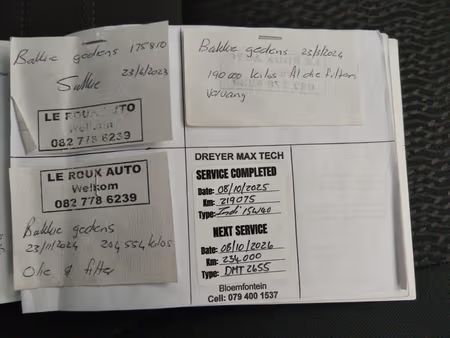 Bakkie gediens 175810
Sakkie 23/6/2023
LE ROUX AUTO
Welkom
082 778 6239
Bakkie gediens 23/5/2024
190 000 kilos Al die filters
Vervang
LE ROUX AUTO
Welkom
082 778 6239
Bakkie gediens
23/11/2024 204 554 kilos
Olie & filter
DREYER MAX TECH
SERVICE COMPLETED
Date: 08/10/2025
Km: 219075
Type: Indi 15W40
NEXT SERVICE
Date: 08/10/2026
Km: 234000
Type: DMT 2655
Bloemfontein
Cell: 079 400 1537